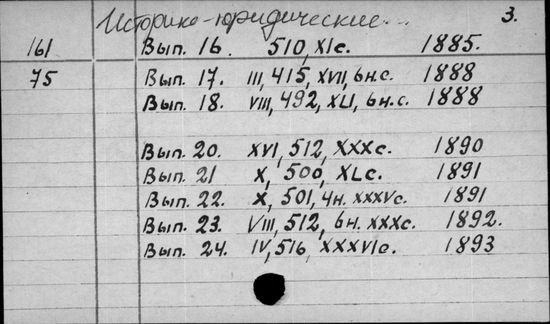 Историко-юридические... 3.
161 Вып. 16. 510, XIс. 1885.
75 Вып. 17. III, 415, XVII, 6н.с. 1888
Вып. 18. VIII, 492, XLI, 6н.с. 1888
Вып. 20. XVI, 512, XXXс. 1890
Вып. 21 X, 500, XLс. 1891
Вып. 22. X, 501, 4н. XXXVс. 1891
Вып. 23. VIII, 512, 6н. XXXс. 1892.
Вып. 24. IV, 516, XXXVIс. 1893